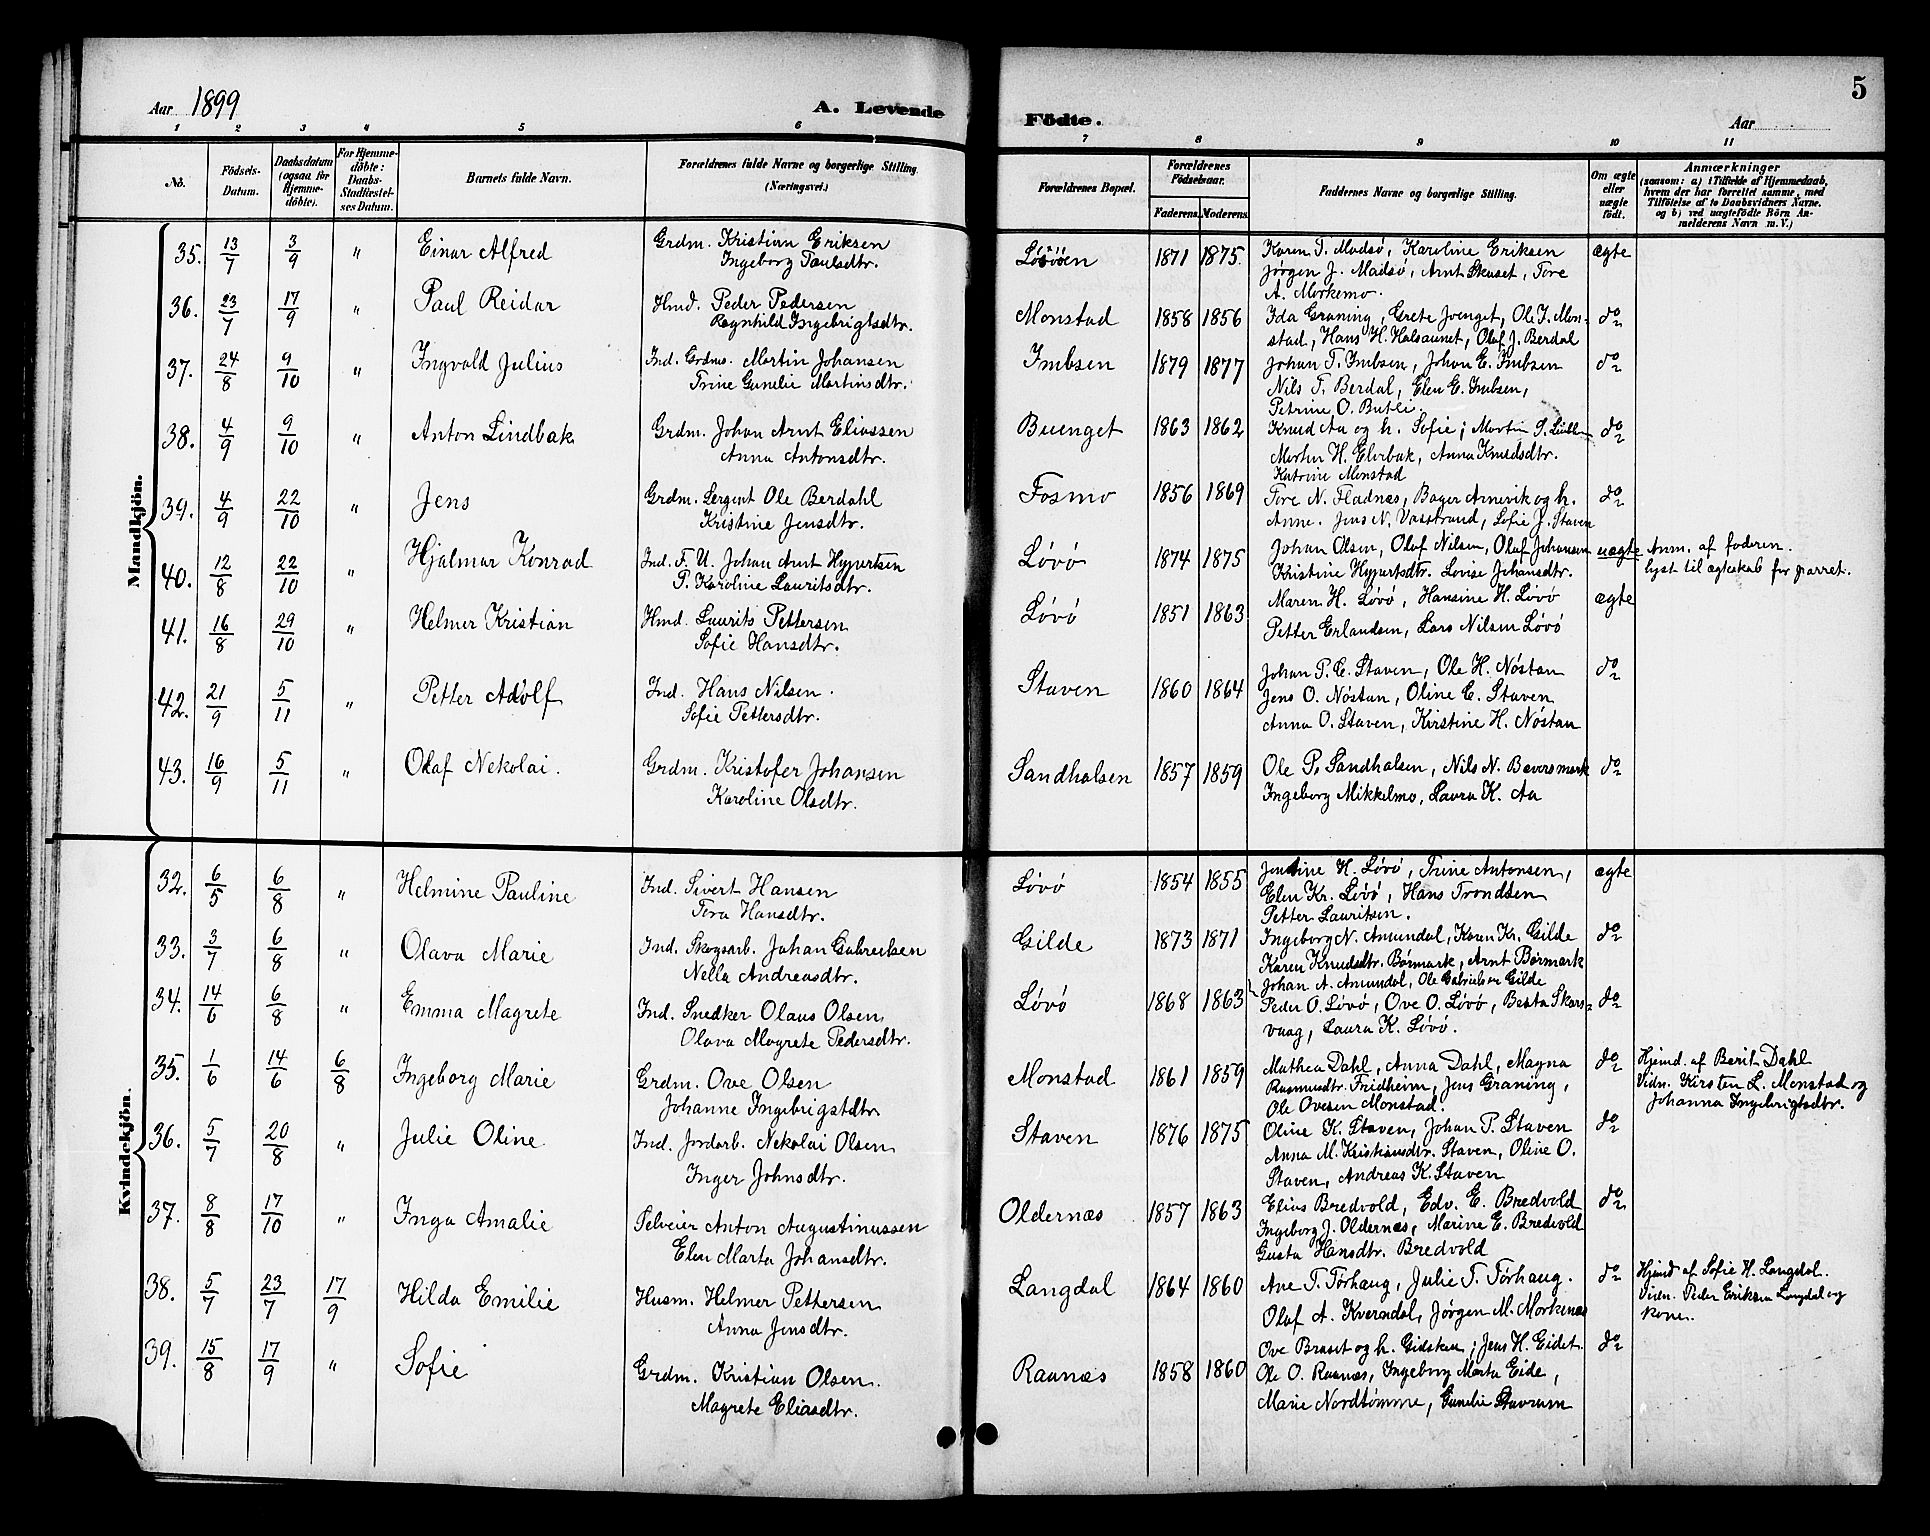 Aar 1899
A. Levende Födte.
5
Aar
1 2 3 4 5 6 7 8 9 10 11
No. Födsels-Datum. Daabsdatum (ogsaa for Hjemme-döbte). For Hjemme-döbte: Daabs-Stadfæstel-ses Datum. Barnets fulde Navn. Forældrenes fulde Navne og borgerlige Stilling. (Næringsvei.) Forældrenes Bopæl. Forældrenes Födselsaar. Faderens. Moderens. Faddernes Navne og borgerlige Stilling. Om ægte eller uægte födt. Anmærkninger (saasom: a) i Tilfælde af Hjemmedaab, hvem der har forrettet samme, med Tilföielse af to Daabsvidners Navne. og b) ved uægtefödte Börn An-melderens Navn m. V.)
Mandkjön.
35. 13/7 3/9 " Einar Alfred Grdm. Kristian Eriksen Løvöen 1871 1875. Karen T. Madsø, Karoline Eriksen ægte
Ingeborg Paulsdtr. Jørgen J. Madsø, Arnt Skuset, Tore
A. Morkemo.
36. 23/7 17/9 " Paul Reidar Hmd. Peder Pedersen Monstad 1858 1856 Ida Graning, Grete Joenget, Ole J. Mon- do
Ragnhild Ingebrigtsdtr. stad, Hans H. Halsaunet, Olaf J. Berdal
37. 24/8 9/10 " Ingvald Julius Ind. Grdms. Martin Johansen Imbsen 1879 1877 Johan T. Imbsen, Johan E. Imbsen do
Trine Gunelie Martinsdtr. Nils T. Berdal, Elen E. Imbsen,
Petrine O. Butli
38. 4/9 9/10 " Anton Lindbak Grdm. Johan Arnt Eliassen Buenget 1863 1862 Knud Aa og h. Sofie; Martin P. do
Anna Antonsdtr. Morten H. Elvebak, Anna Knudsdtr.
Katrine Monstad
39. 4/9 22/10 " Jens Grdm. Sergent Ole Berdahl Fosmo 1856 1869 Tore N. Fladnæs, Bager Arnevik og h. do
Kristine Jensdtr. Anne. Jens N. Vasstrand, Sofie J. Staven
40. 12/8 22/10 " Hjalmar Konrad Ind. F. U. Johan Arnt Hypertsen Løvö 1874 1875 Johan Olsen, Olaf Nilsen, Olaf Johansen uægte Anm. af faderen.
P. Karoline Lauritsdtr. Kristine Hypertsdtr. Lovise Johansdtr. lyst til ægteskab for parret.
41. 16/8 29/10 " Helmer Kristian Hmd. Laurits Pettersen Løvö 1851 1863 Maren H. Løvö, Hansine H. Løvö ægte
Sofie Hansdtr. Petter Erlandsen, Lars Nilsen Løvö
42. 21/9 5/11 " Petter Adolf Ind. Hans Nilsen. Staven 1860 1864 Johan P. E. Staven, Ole H. Nöstan do
Sofie Pettersdtr. Jens O. Nöstan, Oline E. Staven
Anna O. Staven, Kirstine H. Nöstan
43. 16/9 5/11 " Olaf Nekolai. Grdm. Kristofer Johansen Sandhalsen 1857 1859 Ole P. Sandhalsen, Nils N. Beversmark do
Karoline Olsdtr. Ingeborg Mikkelmo, Laura K. Aa
Kvindekjön.
32. 6/5 6/8 " Helmine Pauline Ind. Sivert Hansen Løvö 1854 1855 Jentine H. Løvö, Trine Antonsen, ægte
Tora Hansdtr. Elen Kr. Løvö, Hans Trondsen
Petter Lauritsen.
33. 3/7 6/8 " Olava Marie Ind. Skogsarb. Johan Gabrielsen Gilde 1873 1871 Ingeborg N. Amundal, Karen Kr. Gilde do
Nella Andreasdtr. Karen Knudsdtr. Børmark, Arnt Børmark
Johan A. Amundal, Ole Gabrielsen Gilde
34. 14/6 6/8 " Emma Magrete Ind. Snedker Olaus Olsen Løvö 1868 1863 Peder O. Løvö, Ove O. Løvö, Berta Skars- do
Olava Magrete Pedersdtr. vaag, Laura K. Løvö.
35. 1/6 14/6 6/8 Ingeborg Marie Grdm. Ove Olsen Monstad 1861 1859 Mathea Dahl, Anna Dahl, Magna do Hjemd. af Berit Dahl
Johanne Ingebrigtsdtr Rasmusdtr. Fridheim, Jens Graning, Vidn. Kirsten L. Monstad og
Ole Ovesen Monstad. Johanna Ingebrigtsdtr.
36. 5/7 20/8 " Julie Oline Ind. Jordarb. Nekolai Olsen Staven 1876 1875 Oline K. Staven, Johan P. Staven do
Inger Johnsdtr. Anna M. Kristiansdtr. Staven, Oline O.
Staven, Andreas K. Staven
37. 8/8 17/10 " Inga Amalie Pelveier Anton Augustinussen Oldernæs 1857 1863 Elius Bredvold, Edv. E. Bredvold do
Elen Marta Johansdtr. Ingeborg J. Oldernæs, Marine E. Bredvold
Gusta Hansdtr. Bredvold
38. 5/7 23/7 17/9 Hilda Emilie Husm. Helmer Pettersen Langdal 1864 1860 Ane T. Tørhaug, Julie T. Tørhaug. do Hjemd af Sofie H. Langdal.
Anna Jensdtr. Olaf A. Kverndal, Jørgen M. Morkenæs Vidn. Peder Eriksen Langdal og
kone.
39. 15/8 17/9 " Sofie Grdm. Kristian Olsen. Raanæs 1858 1860 Ove Braset og h. Gidsken; Jens H. Eidet. do
Magrete Eliasdtr. Ole O. Raanæs, Ingeborg Marta Eide,
Marie Nordtømme, Gunelie Stavrum